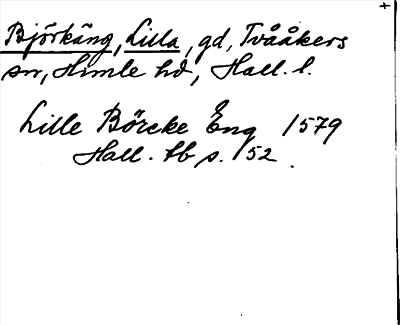 Björkäng, Lilla, gd, Tvååkers
sn, Himle hd, Hall. l.
Lille Börcke Eng 1579
Hall. tb s. 152.